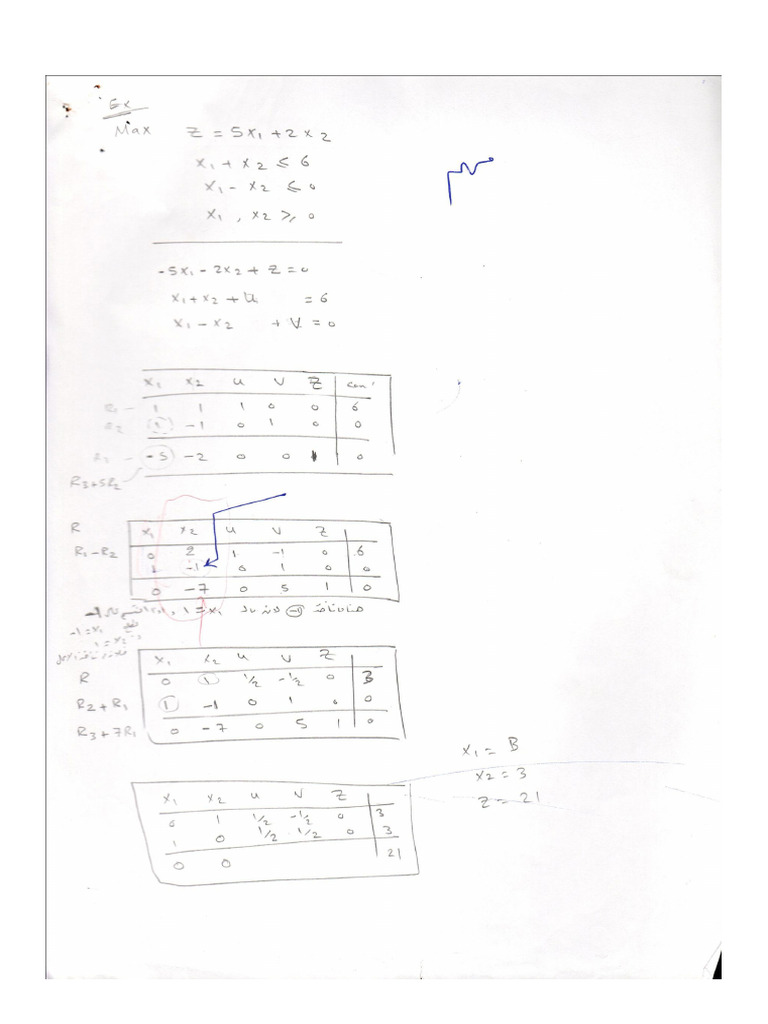 Ex
Max Z = 5x₁ + 2x₂
x₁ + x₂ ≤ 6
x₁ - x₂ ≤ 0
x₁ , x₂ ≥ 0
-5x₁ - 2x₂ + Z = 0
x₁ + x₂ + u = 6
x₁ - x₂ + v = 0
x₁ x₂ u v Z con
R₁ - 1 1 1 0 0 6
R₂ 1 -1 0 1 0 0
R₃ - -5 -2 0 0 1 0
R₃+5R₂
R x₁ x₂ u v Z
R₁-R₂ 0 2 1 -1 0 6
1 -1 0 1 0 0
0 -7 0 5 1 0
-1 = x₁
1 = x₂
x₁ x₂ u v Z
R 0 1 1/2 -1/2 0 3
R₂+R₁ 1 -1 0 1 0 0
R₃+7R₁ 0 -7 0 5 1 0
x₁ = 3
x₂ = 3
Z = 21
x₁ x₂ u v Z
0 1 1/2 -1/2 0 3
1 0 1/2 1/2 0 3
0 0 21